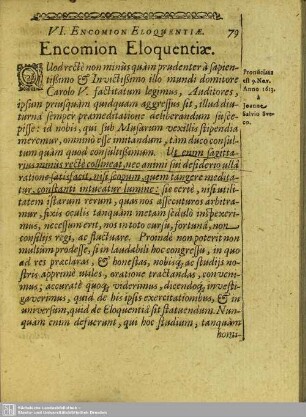 VI. ENCOMION ELOQUENTIÆ. 79
Encomion Eloquentiæ.
QUod rectè non minùs quàm prudenter à sapien-
tissimo & Invictissimo illo mundi domitore
Carolo V. factitatum legimus, Auditores,
ipsum prius quàm quidquam aggressus sit, illud diu-
turnâ semper præmeditatione deliberandum susce-
pisse: id nobis, qui sub Musarum vexillis stipendia
meremur, omninò esse imitandum, tàm duco consul-
tum quàm quod consultissimum. Ut enim sagitta-
rius minùs rectè collineat, nec animi sui desiderio ullâ
ratione satisfacit, nisi scopum quem tangere medita-
tur, constanti intueatur lumine: sic certè, nisi utili-
tatem istarum rerum, quas nos assecuturos arbitra-
mur, fixis oculis tanquàm metam sedulò inspexeri-
mus, necessum erit, nos in toto cursu, fortunâ, non
consilijs regi, ac fluctuare. Proinde non poterit non
multùm prodesse, si in laudabili hoc congressu, in quo
ad res præclaras, & honestas, nobisq; ac studijs no-
stris apprimè utiles, oratione tractandas, conveni-
mus; accuratè quoq; viderimus, dicendoq; investi-
gaverimus, quid de his ipsis exercitationibus, & in
universum, quid de Eloquentiâ sit statuendum. Nun-
quàm enim defuerunt, qui hoc studium, tanquàm
homi-
Pronunciata
est 9. Nov.
Anno 1613.
à
Joanne
Salvio Sve-
co.